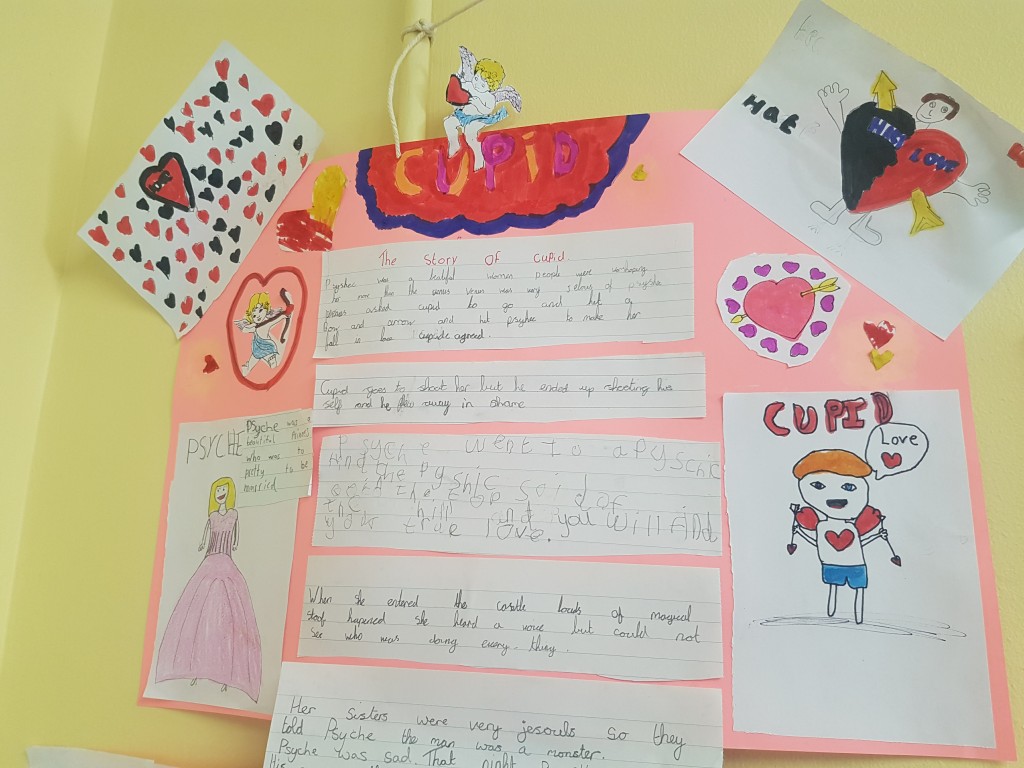 CUPID
The Story Of Cupid.
Psyshee was a beatiful women people were worshiping
her more than the venus Venus was very jelous of psyshe
venus asked cupid to go and get a
bow and arrow and hit psyhee to make her
fall in love cupide agreed.
Cupid goes to shoot her but he ended up shooting his
self and he flew away in shame
Psyche went to a pyschic
And the pyshic said
the top of
the hill and you will find
your true love.
When she entered the castle loads of magical
stoof hapened she heard a voice but could not
see who was doing every thing.
Her sisters were very jesouls so they
told Psyche the man was a monster.
Psyche was sad. That night
PSYCHE
Psyche was a
beautiful
who was to
pretty to be
married
Hat
HATE LOVE
CUPID
Love